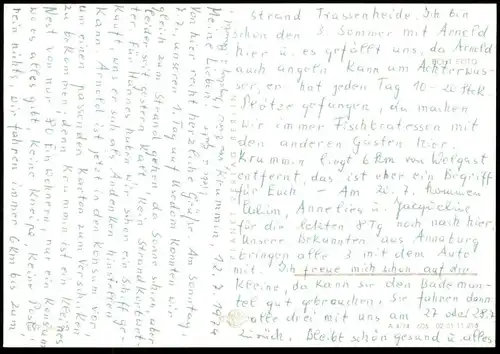 Krummin, 12.7.1974
Meine Lieben!
Von hier recht herzliche Grüße. Am Sonntag,
7.7., unseren 1. Tag auf Usedom konnten wir
gleich zum Strand gehen, da Sonne schien, aber
leider seit gestern kalt. Kein Strandkorbwet-
ter. Für Hannes haben wir schon ein Schiff ge-
kauft, was er sich als Andenken hinstellen
kann. Arnold ist jetzt in den Konsum vor,
um einen passenden Karton zum Verschicken
zu bekommen, denn Krummin ist ein kleines
Nest von nur 90 Einwohnern, nur ein Konsum,
wo es alles gibt, keine Kneipe, keine Post,
rein nichts, wir fahren immer 6 km bis zum
Strand Trassenheide. Ich bin
schon den 3. Sommer mit Arnold
hier u. es gefällt uns, da Arnold
auch angeln kann am Achterwas-
ser, er hat jeden Tag 10-20 Stck
Plötze gefangen, da machen
wir immer Fischbratessen mit
den anderen Gästen hier.
Krummin liegt 6 km von Wolgast
entfernt, das ist aber ein Begriff
für Euch - Am 20.7. kommen
Annelies u. Jacqueline
für die letzten 8 Tg noch nach hier,
unsere Bekannten aus Annaburg
bringen alle 3 mit dem Auto
mit. Ich freue mich schon auf die
Kleine, da kann sie den Bademan-
tel gut gebrauchen. Sie fahren dann
alle drei mit uns am 27. oder 28.7.
zurück. Bleibt schön gesund u. alles